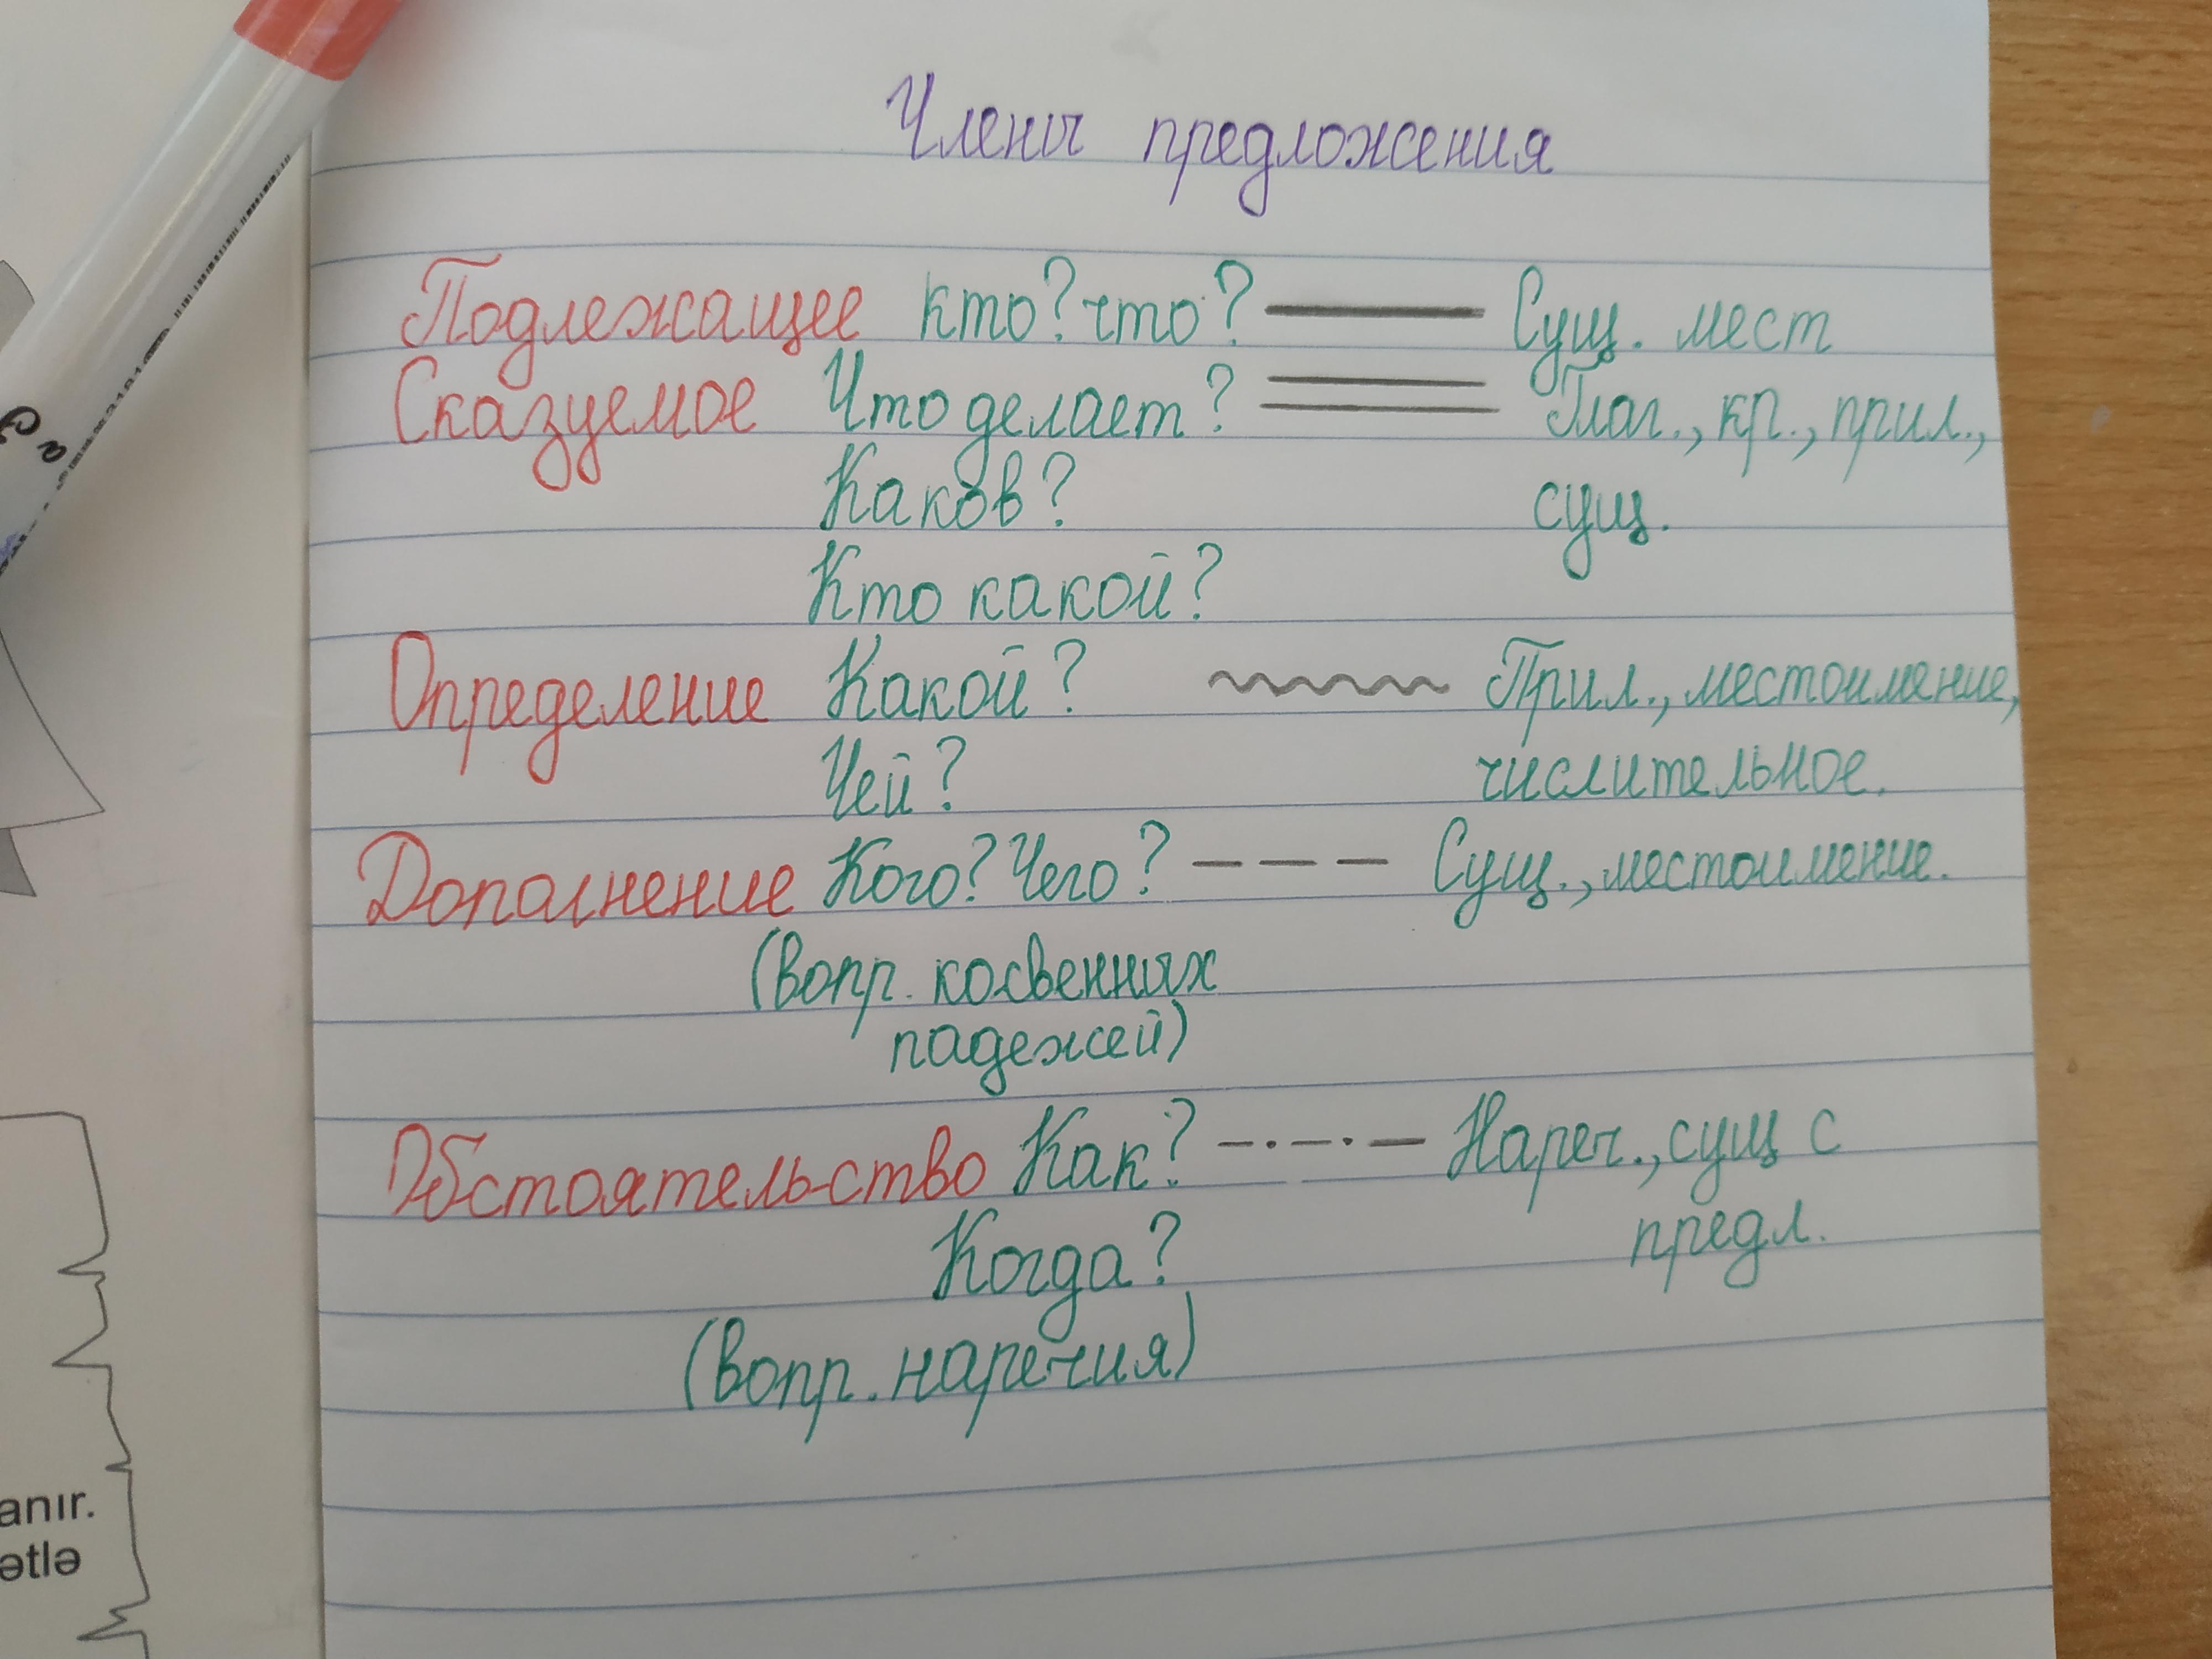 Члены предложения
Подлежащее кто? что? Сущ. мест
Сказуемое Что делает? Глаг., кр., прил.,
Каков? сущ.
Кто какой?
Определение Какой? Прил., местоимение,
Чей? числительное.
Дополнение Кого? Чего? Сущ., местоимение.
(вопр. косвенных
падежей)
Обстоятельство Как? Нареч., сущ с
Когда? предл.
(вопр. наречия)
anır.
ətlə